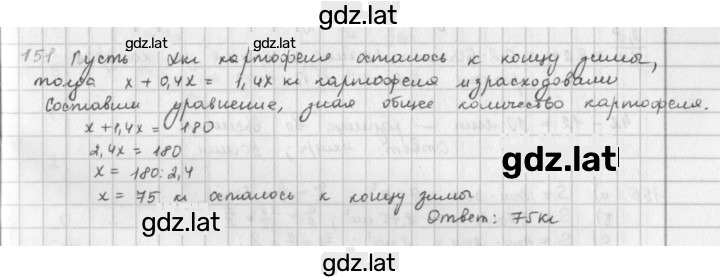 gdz.lat
151 Пусть x кг картофеля осталось к концу зимы,
gdz.lat gdz.lat
тогда x + 0,4x = 1,4x кг картофеля израсходовали
Составим уравнение, зная общее количество картофеля.
x + 1,4x = 180
2,4x = 180
gdz.lat
x = 180 : 2,4
x = 75 кг осталось к концу зимы
gdz.lat
Ответ: 75 кг
gdz.lat